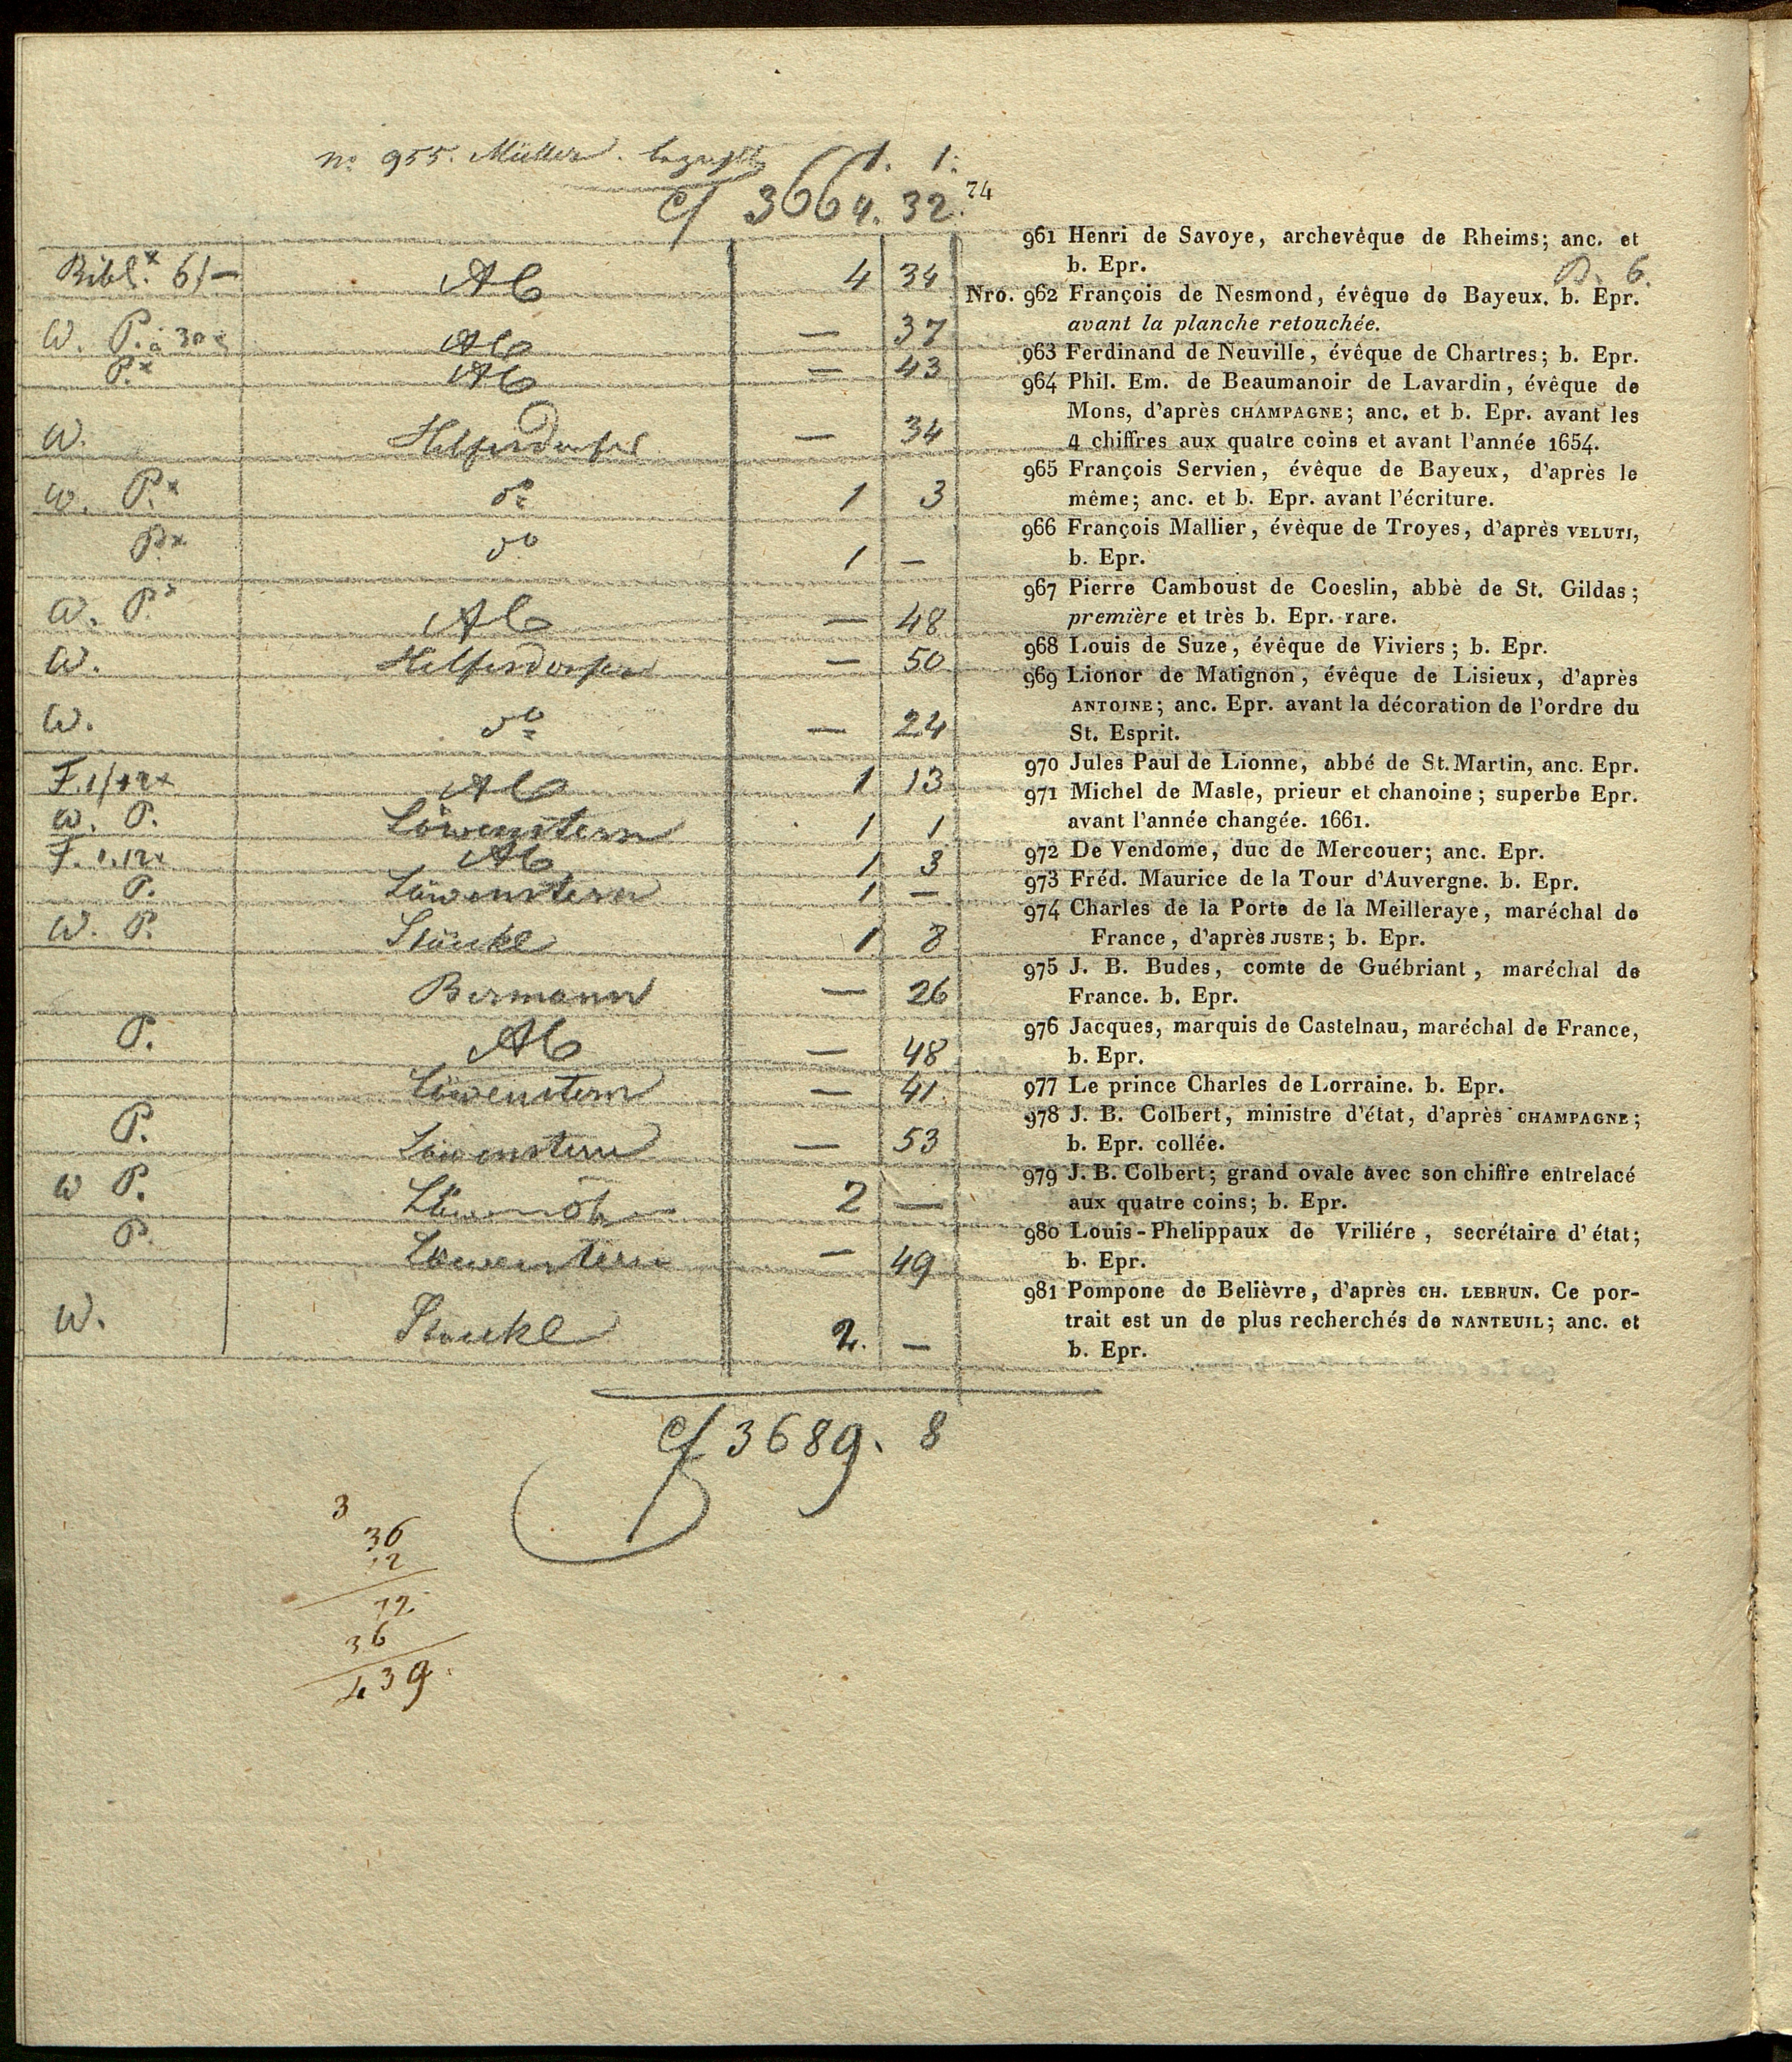 no 955. Müller. bezahlt 1. 1.
cf 3664. 32.
74
961 Henri de Savoye, archevêque de Rheims; anc. et
b. Epr.
B. 6.
Bibl.x 6f — Ab 4 34
Nro. 962 François de Nesmond, évêque de Bayeux. b. Epr.
avant la planche retouchée.
W. P. à 30x Ab — 37
963 Ferdinand de Neuville, évêque de Chartres; b. Epr.
P.x Ab — 43
964 Phil. Em. de Beaumanoir de Lavardin, évêque de
Mons, d'après CHAMPAGNE; anc. et b. Epr. avant les
4 chiffres aux quatre coins et avant l'année 1654.
W. Helferdorfer — 34
965 François Servien, évêque de Bayeux, d'après le
même; anc. et b. Epr. avant l'écriture.
W. P.x do 1 3
966 François Mallier, évêque de Troyes, d'après VELUTI,
b. Epr.
P.x do 1 —
967 Pierre Camboust de Coeslin, abbè de St. Gildas;
première et très b. Epr. rare.
W. P.x Ab — 48
968 Louis de Suze, évêque de Viviers; b. Epr.
W. Helferdorfer — 50
969 Lionor de Matignon, évêque de Lisieux, d'après
ANTOINE; anc. Epr. avant la décoration de l'ordre du
St. Esprit.
W. do — 24
970 Jules Paul de Lionne, abbé de St. Martin, anc. Epr.
F. 1f 12x Ab 1 13
971 Michel de Masle, prieur et chanoine; superbe Epr.
avant l'année changée. 1661.
W. P. Löwenstern 1 1
972 De Vendome, duc de Mercouer; anc. Epr.
F. 1.12x Ab 1 3
973 Fréd. Maurice de la Tour d'Auvergne. b. Epr.
P. Löwenstern 1 —
974 Charles de la Porte de la Meilleraye, maréchal de
France, d'après JUSTE; b. Epr.
W. P. Stöckl 1 8
975 J. B. Budes, comte de Guébriant, maréchal de
France. b. Epr.
Bermann — 26
976 Jacques, marquis de Castelnau, maréchal de France,
b. Epr.
P. Ab — 48
977 Le prince Charles de Lorraine. b. Epr.
Löwenstern — 41
978 J. B. Colbert, ministre d'état, d'après CHAMPAGNE;
b. Epr. collée.
P. Löwenstern — 53
979 J. B. Colbert; grand ovale avec son chiffre entrelacé
aux quatre coins; b. Epr.
W P. 2 —
980 Louis-Phelippaux de Vriliére, secrétaire d'état;
b. Epr.
P. Löwenstern — 49
981 Pompone de Belièvre, d'après CH. LEBRUN. Ce por-
trait est un de plus recherchés de NANTEUIL; anc. et
b. Epr.
W. Stöckl 2. —
cf 3689. 8
3
36
12
72
36
439.